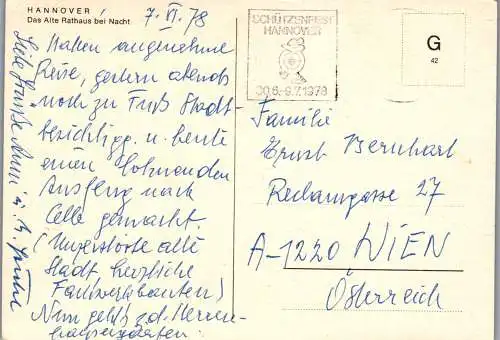 HANNOVER
Das Alte Rathaus bei Nacht
7. VI. 78
Hatten angenehme
Reise, gestern abends
noch zu Fuß Stadt-
besichtigg. u. heute
einen lohnenden
Ausflug nach
Celle gemacht.
(Unzerstörte alte
Stadt, herrliche
Fachwerkbauten)
Nun geht's z.d. Herren-
hausergärten.
Liebe Grüße
SCHÜTZENFEST
HANNOVER
30.6.-9.7.1978
G
42
Familie
Ernst Bernhart
Reclamgasse 27
A-1220 WIEN
Österreich